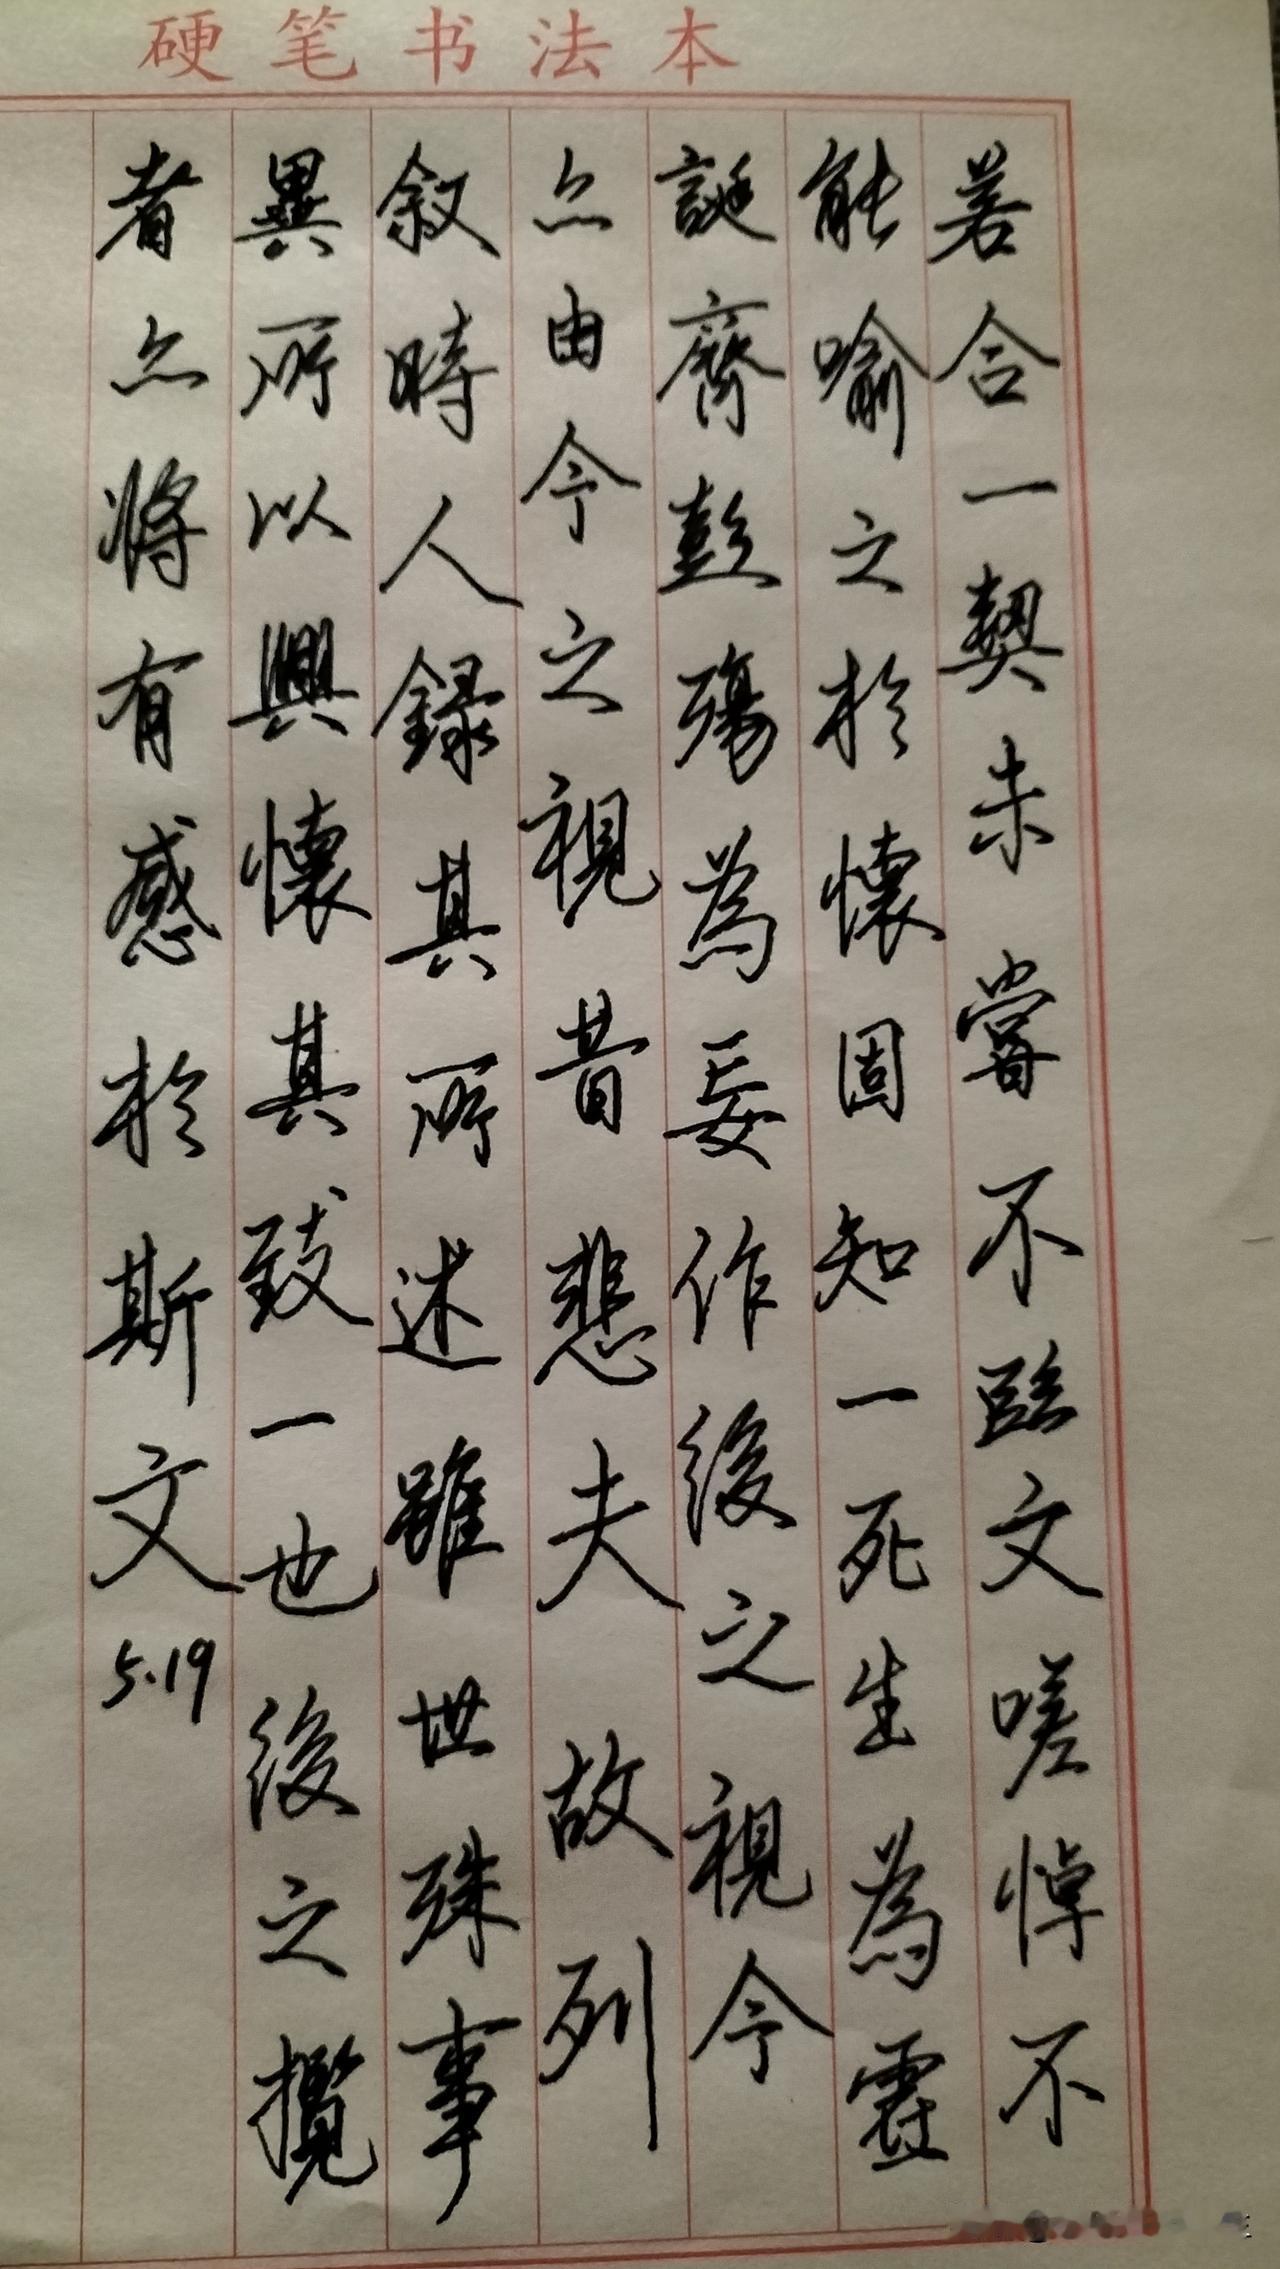 硬笔书法本
若合一契未嘗不臨文嗟悼不
能喻之於懷固知一死生為虛
誕齊彭殤為妄作後之視今
亦由今之視昔悲夫故列
叙時人錄其所述雖世殊事
異所以興懷其致一也後之攬
者亦將有感於斯文
5.19